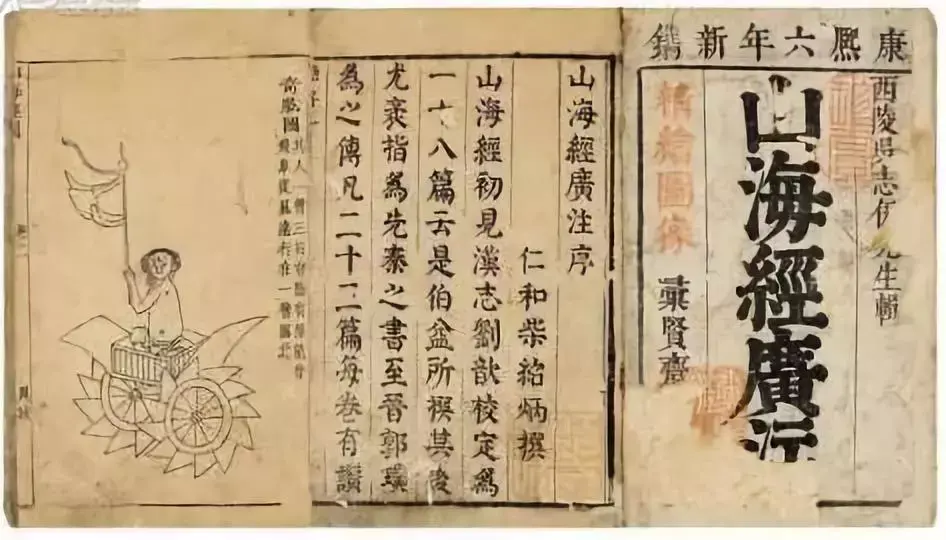 康熙六年新鐫
西陵吳志伊先生輯
山海經廣注
精繪圖像
彙賢齋
山海經廣注序
仁和柴紹炳撰
山海經初見漢志劉歆校定爲
一十八篇云是伯益所撰其後
尤袤指爲先秦之書至晉郭璞
爲之傳凡二十二篇每卷有讚
奇肱國
其人一臂三目有陰有陽能作
飛車從風遠行在一臂國北